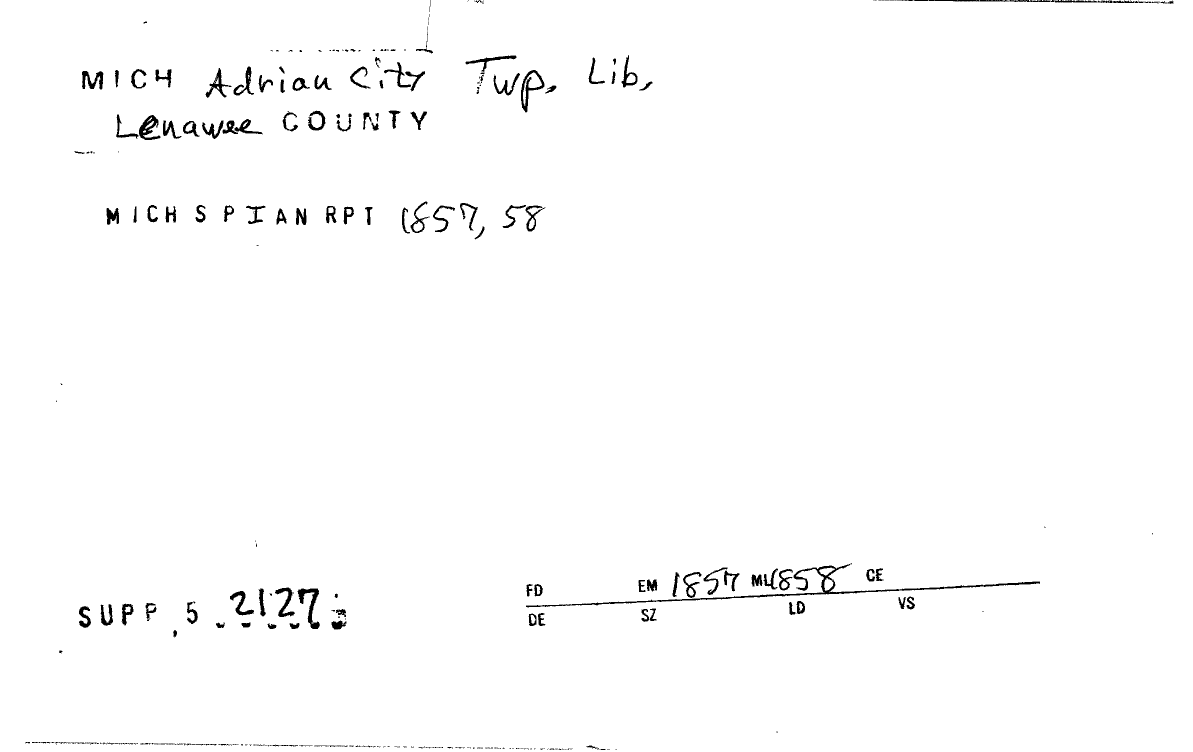 MICH Adrian City Twp. Lib,
Lenawee COUNTY
MICH S P I AN RPT 1857, 58
SUPP 5 2127
FD EM 1857 ML 1858 CE
DE SZ LD VS